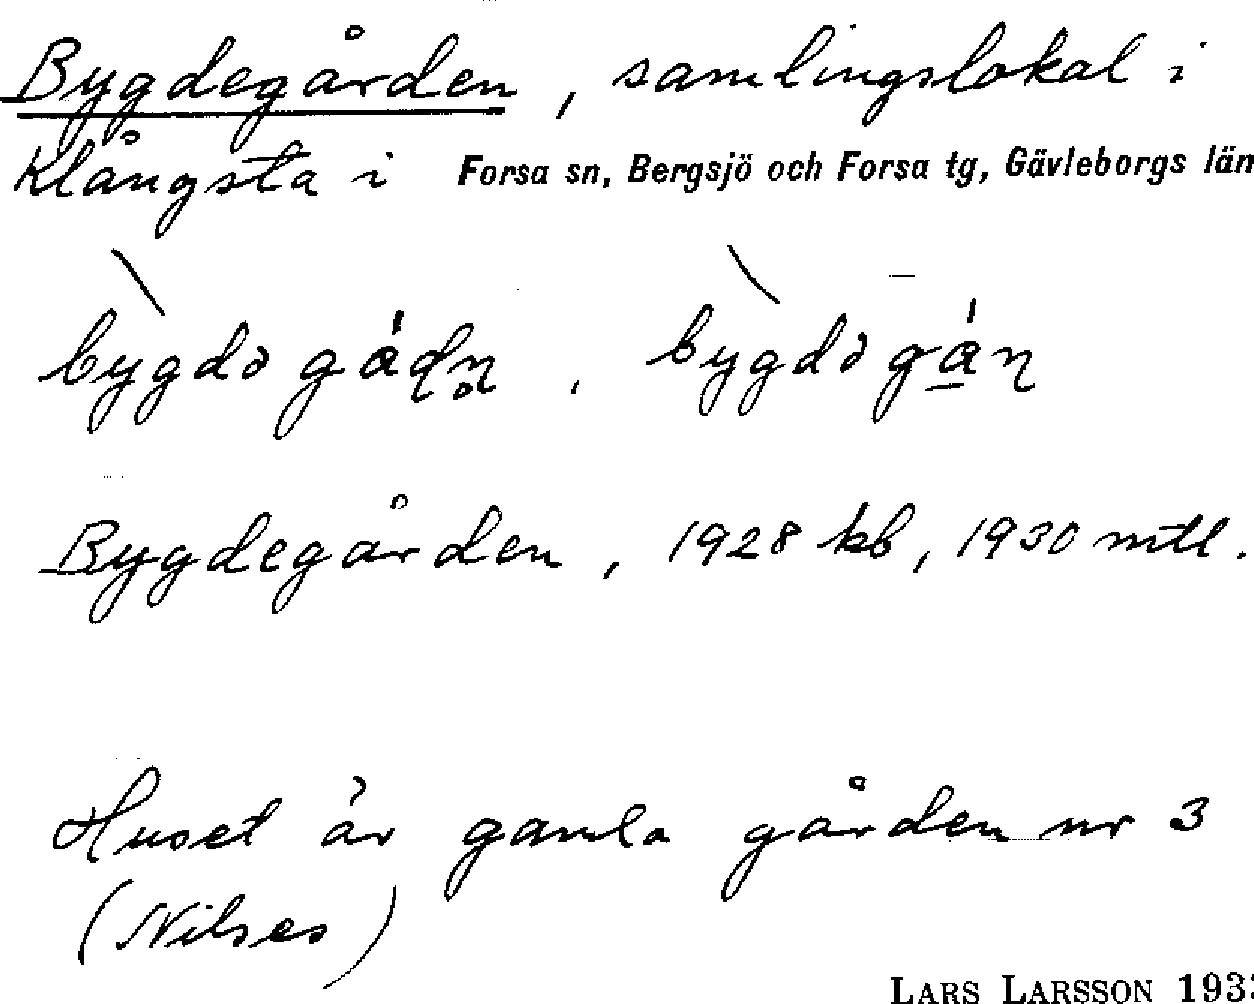 Bygdegården, samlingslokal i
Klångsta i Forsa sn, Bergsjö och Forsa tg, Gävleborgs län
Bygdegården, 1928 kb, 1930 mtl.
Huset är gamla gården nr 3
(Nilses)
LARS LARSSON